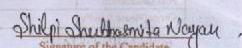 Shilpi Shubhasmita Nayak
Signature of the Candidate